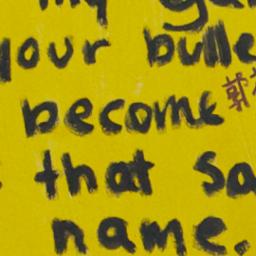 my
your bulle
become
that sa
name.